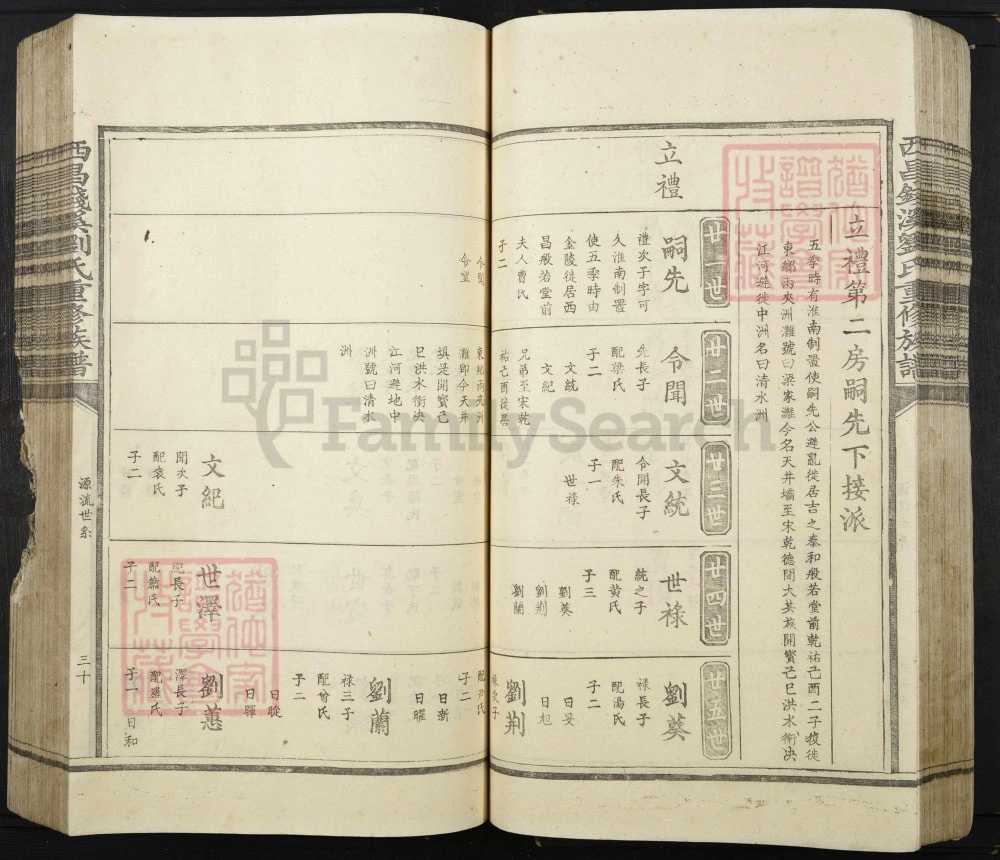 立禮第二房嗣先下接派
五季時有淮南制置使嗣先公避亂徙居吉之泰和般若堂前乾祐己酉二子復徙
東鄉兩夾洲灘號曰梁家灘今名天井壩至宋乾德間大其族開寶己巳洪水衝决
江河避徙中洲名曰清水洲
廿一世
廿二世
廿三世
廿四世
廿五世
立禮
嗣先
禮次子字可
久淮南制置
使五季時由
金陵徙居西
昌般若堂前
夫人曹氏
子二
令聞
令望
令聞
先長子
配梁氏
子二
文統
文紀
兄弟至宋乾
祐己酉徙居
東鄉兩夾洲
灘即今天井
塡是開寶己
巳洪水衝决
江河避地中
洲號曰清水
洲
文統
令聞長子
配朱氏
子一
世祿
文紀
聞次子
配袁氏
子二
世祿
統之子
配黃氏
子三
劉葵
劉荆
劉蘭
世澤
紀長子
配蕭氏
子二
劉葵
祿長子
配湯氏
子二
日旻
日旭
劉荆
祿次子
配尹氏
子二
日新
日曜
劉蘭
祿三子
配曾氏
子二
日㫰
日暉
劉蕙
澤長子
配羅氏
子一
日和
源流世系
三十
西昌錢溪劉氏重修族譜
西昌錢溪劉氏重修族譜
FamilySearch